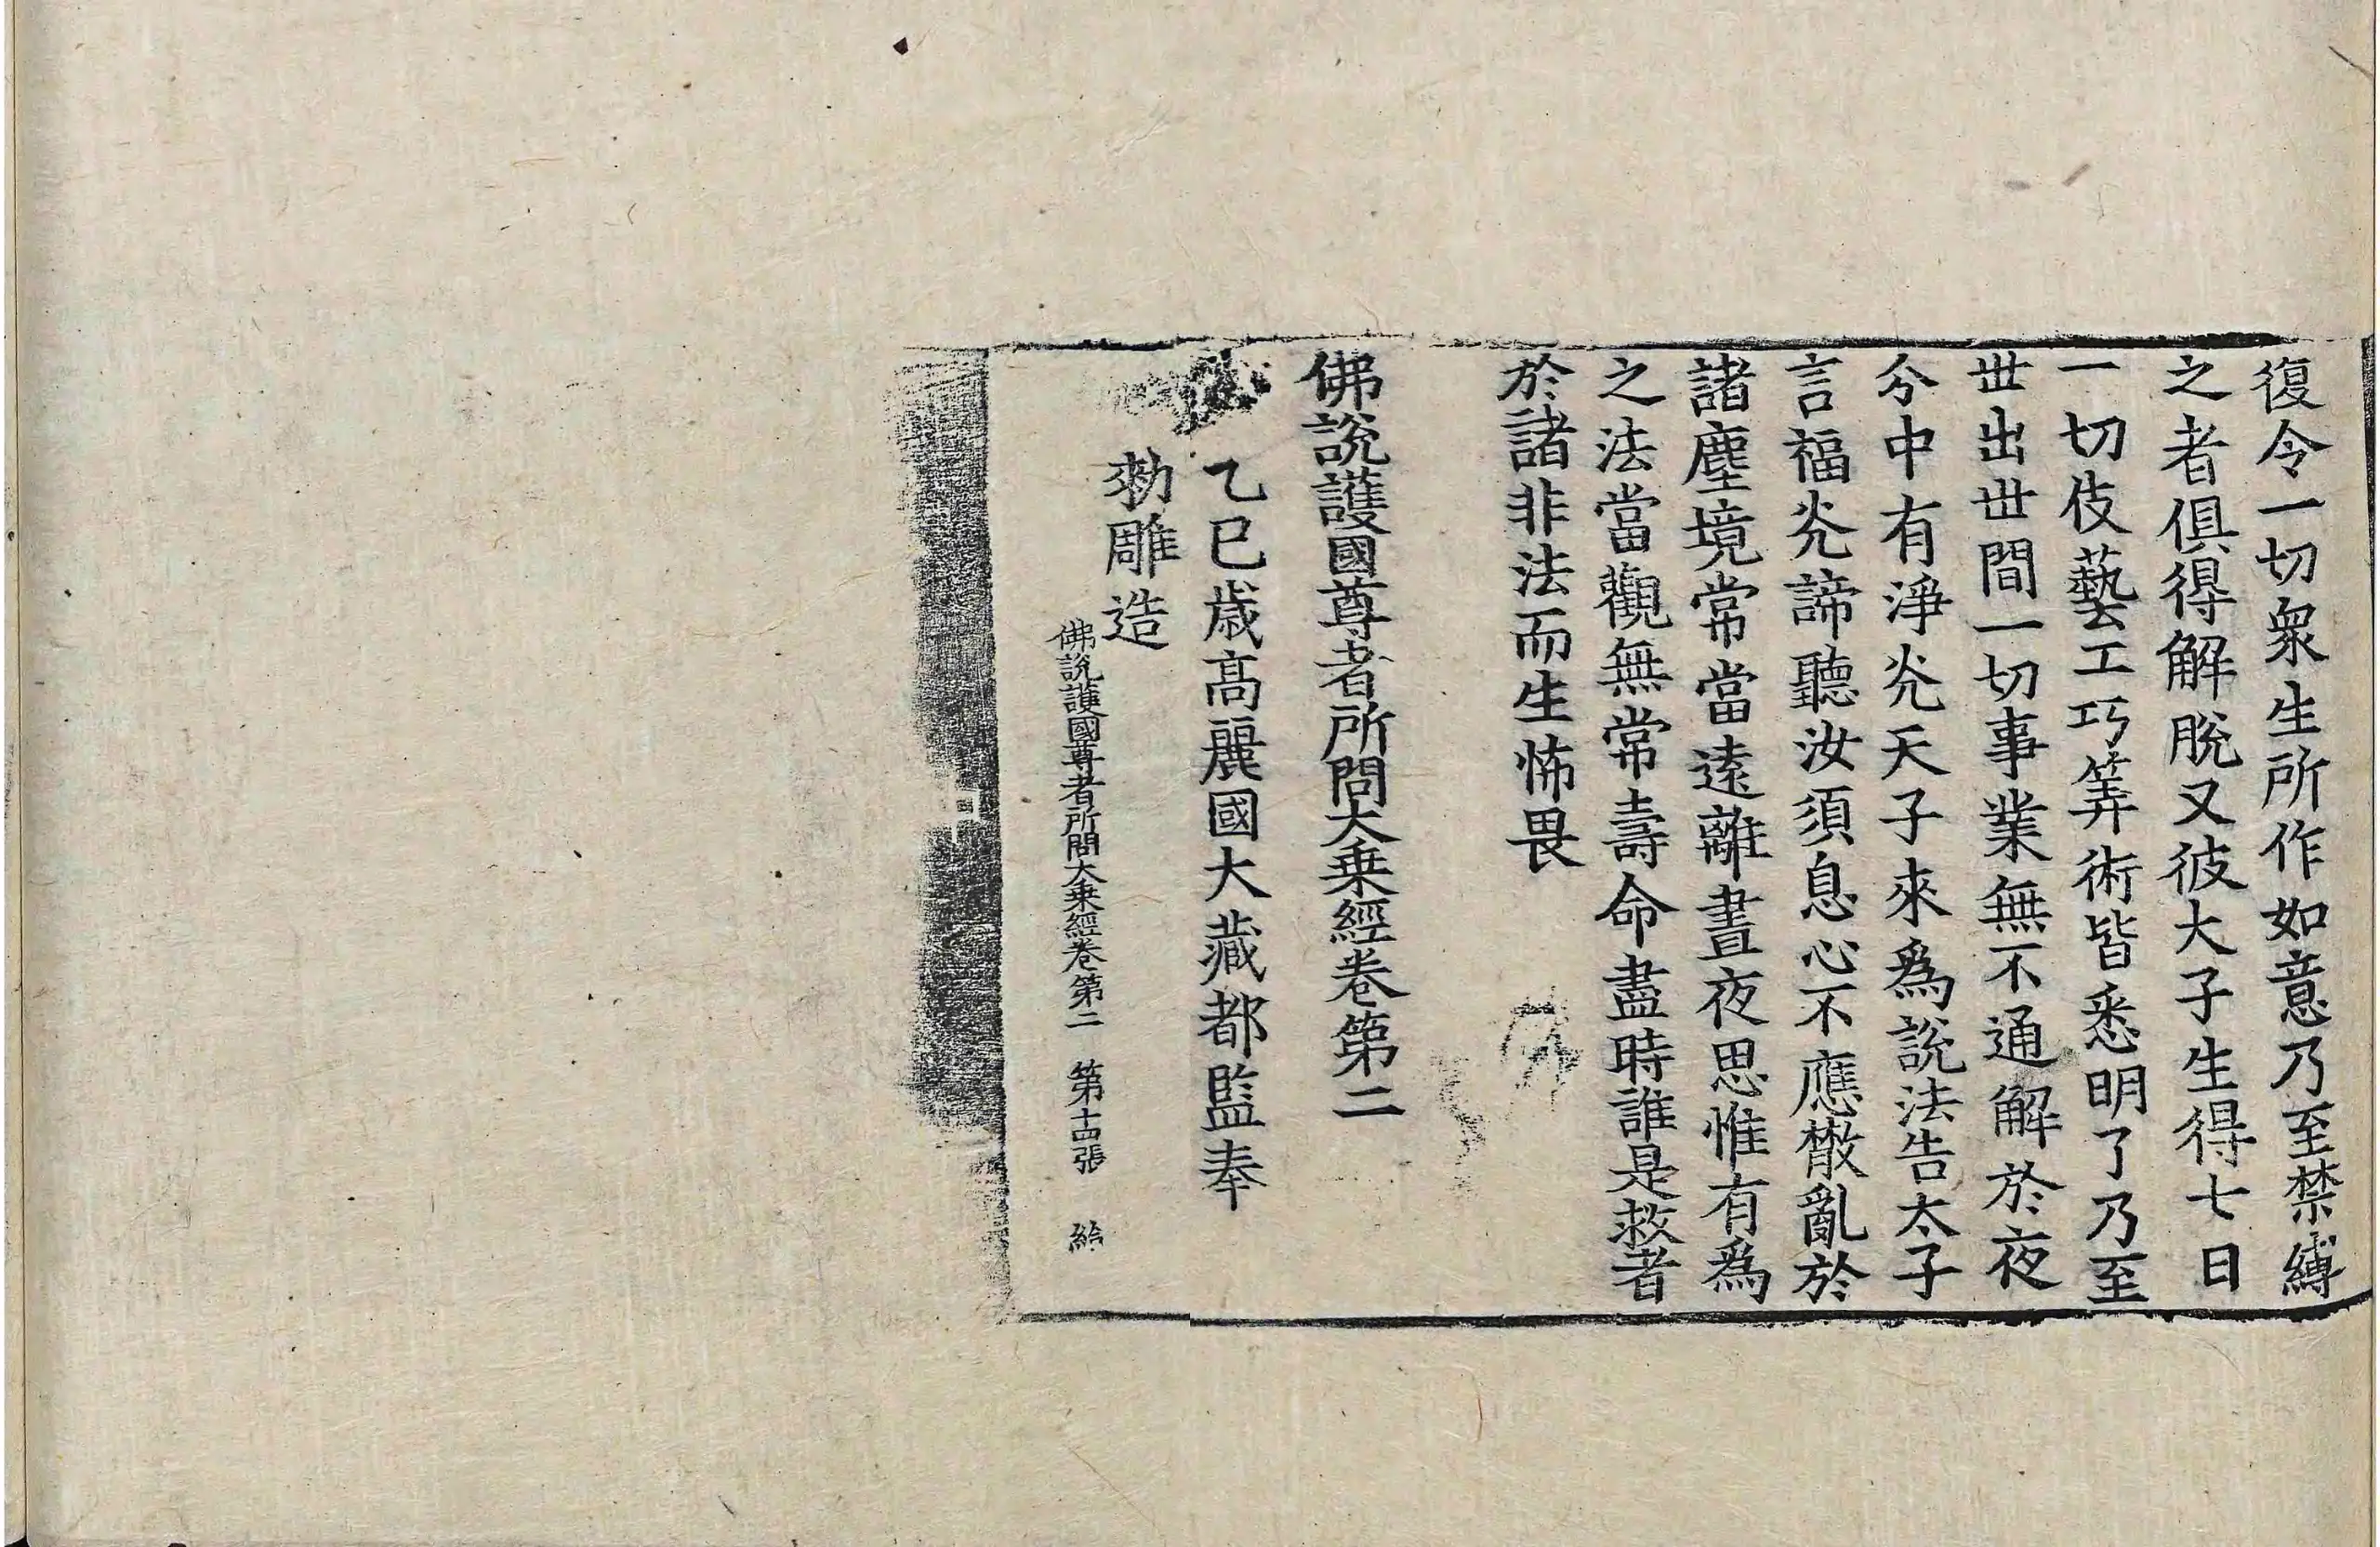 復令一切衆生所作如意乃至禁縛
之者俱得解脫又彼大子生得七日
一切伎藝工巧筭術皆悉明了乃至
丗出丗間一切事業無不通解於夜
分中有淨光天子來爲說法告太子
言福光諦聽汝須息心不應散亂於
諸塵境常當遠離晝夜思惟有爲
之法當觀無常壽命盡時誰是救者
於諸非法而生怖畏
佛說護國尊者所問大乗經卷第二
乙巳歳高麗國大藏都監奉
勅雕造
佛說護國尊者所問大乗經卷第二 第十四張 給